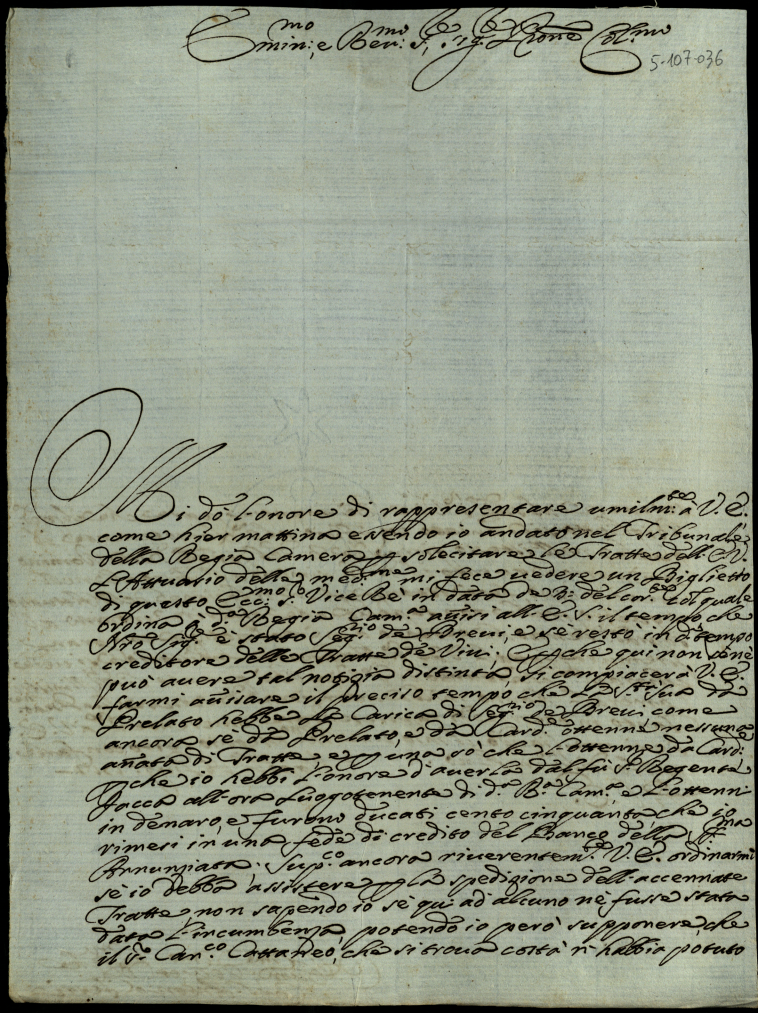 Emin:mo e Rev:mo S:r Sig:r Prone Col:mo
5-107-036
Mi dò l'onore di rappresentare umilm:te à V. E.
come hier mattina essendo io andato nel Tribunale
della Regia Camera p solecitare le Tratte dell'E. V.
l'Attuario delle medme mi fece vedere un Biglietto
di questo Ecc:mo S:r Vice Rè in data de del cor:te col quale
ordina à d:a Regia Cam:a avvisi all'E. S. il tempo che
Nrõ Sig:re è stato Seg:rio de Brevi, e se restò in d:o tempo
creditore delle Tratte de Vini. E pche qui non se ne
può avere tal notizia distinta, si compiacerà V. E.
farmi avvisare il preciso tempo che La S:tà Sua da
Prelato hebbe la Carica di Seg:rio de Brevi come
ancora se da Prelato, e da Card:e ottenne nessuna
annata di Tratte, e p una sò che l'ottenne da Card:e
pche io hebbi l'onore d'averla dal fù S:r Regente
Jacca all'ora Luogotenente di d:a R:a Cam:a e l'ottenni
in denaro, e furono ducati cento cinquanta che io
rimesi in una fede di credito del Banco della SS:ma
Annunziata. Sup:co ancora riverentem:te V. E. ordinarmi
se io debba assistere p la spedizione dell'accennate
Tratte non sapendo io se quì ad alcuno ne fusse stata
data l'incumbenza, potendo io però supponere, che
il S:r Can:co Cattaneo, che si trova costà n'habbia potuto